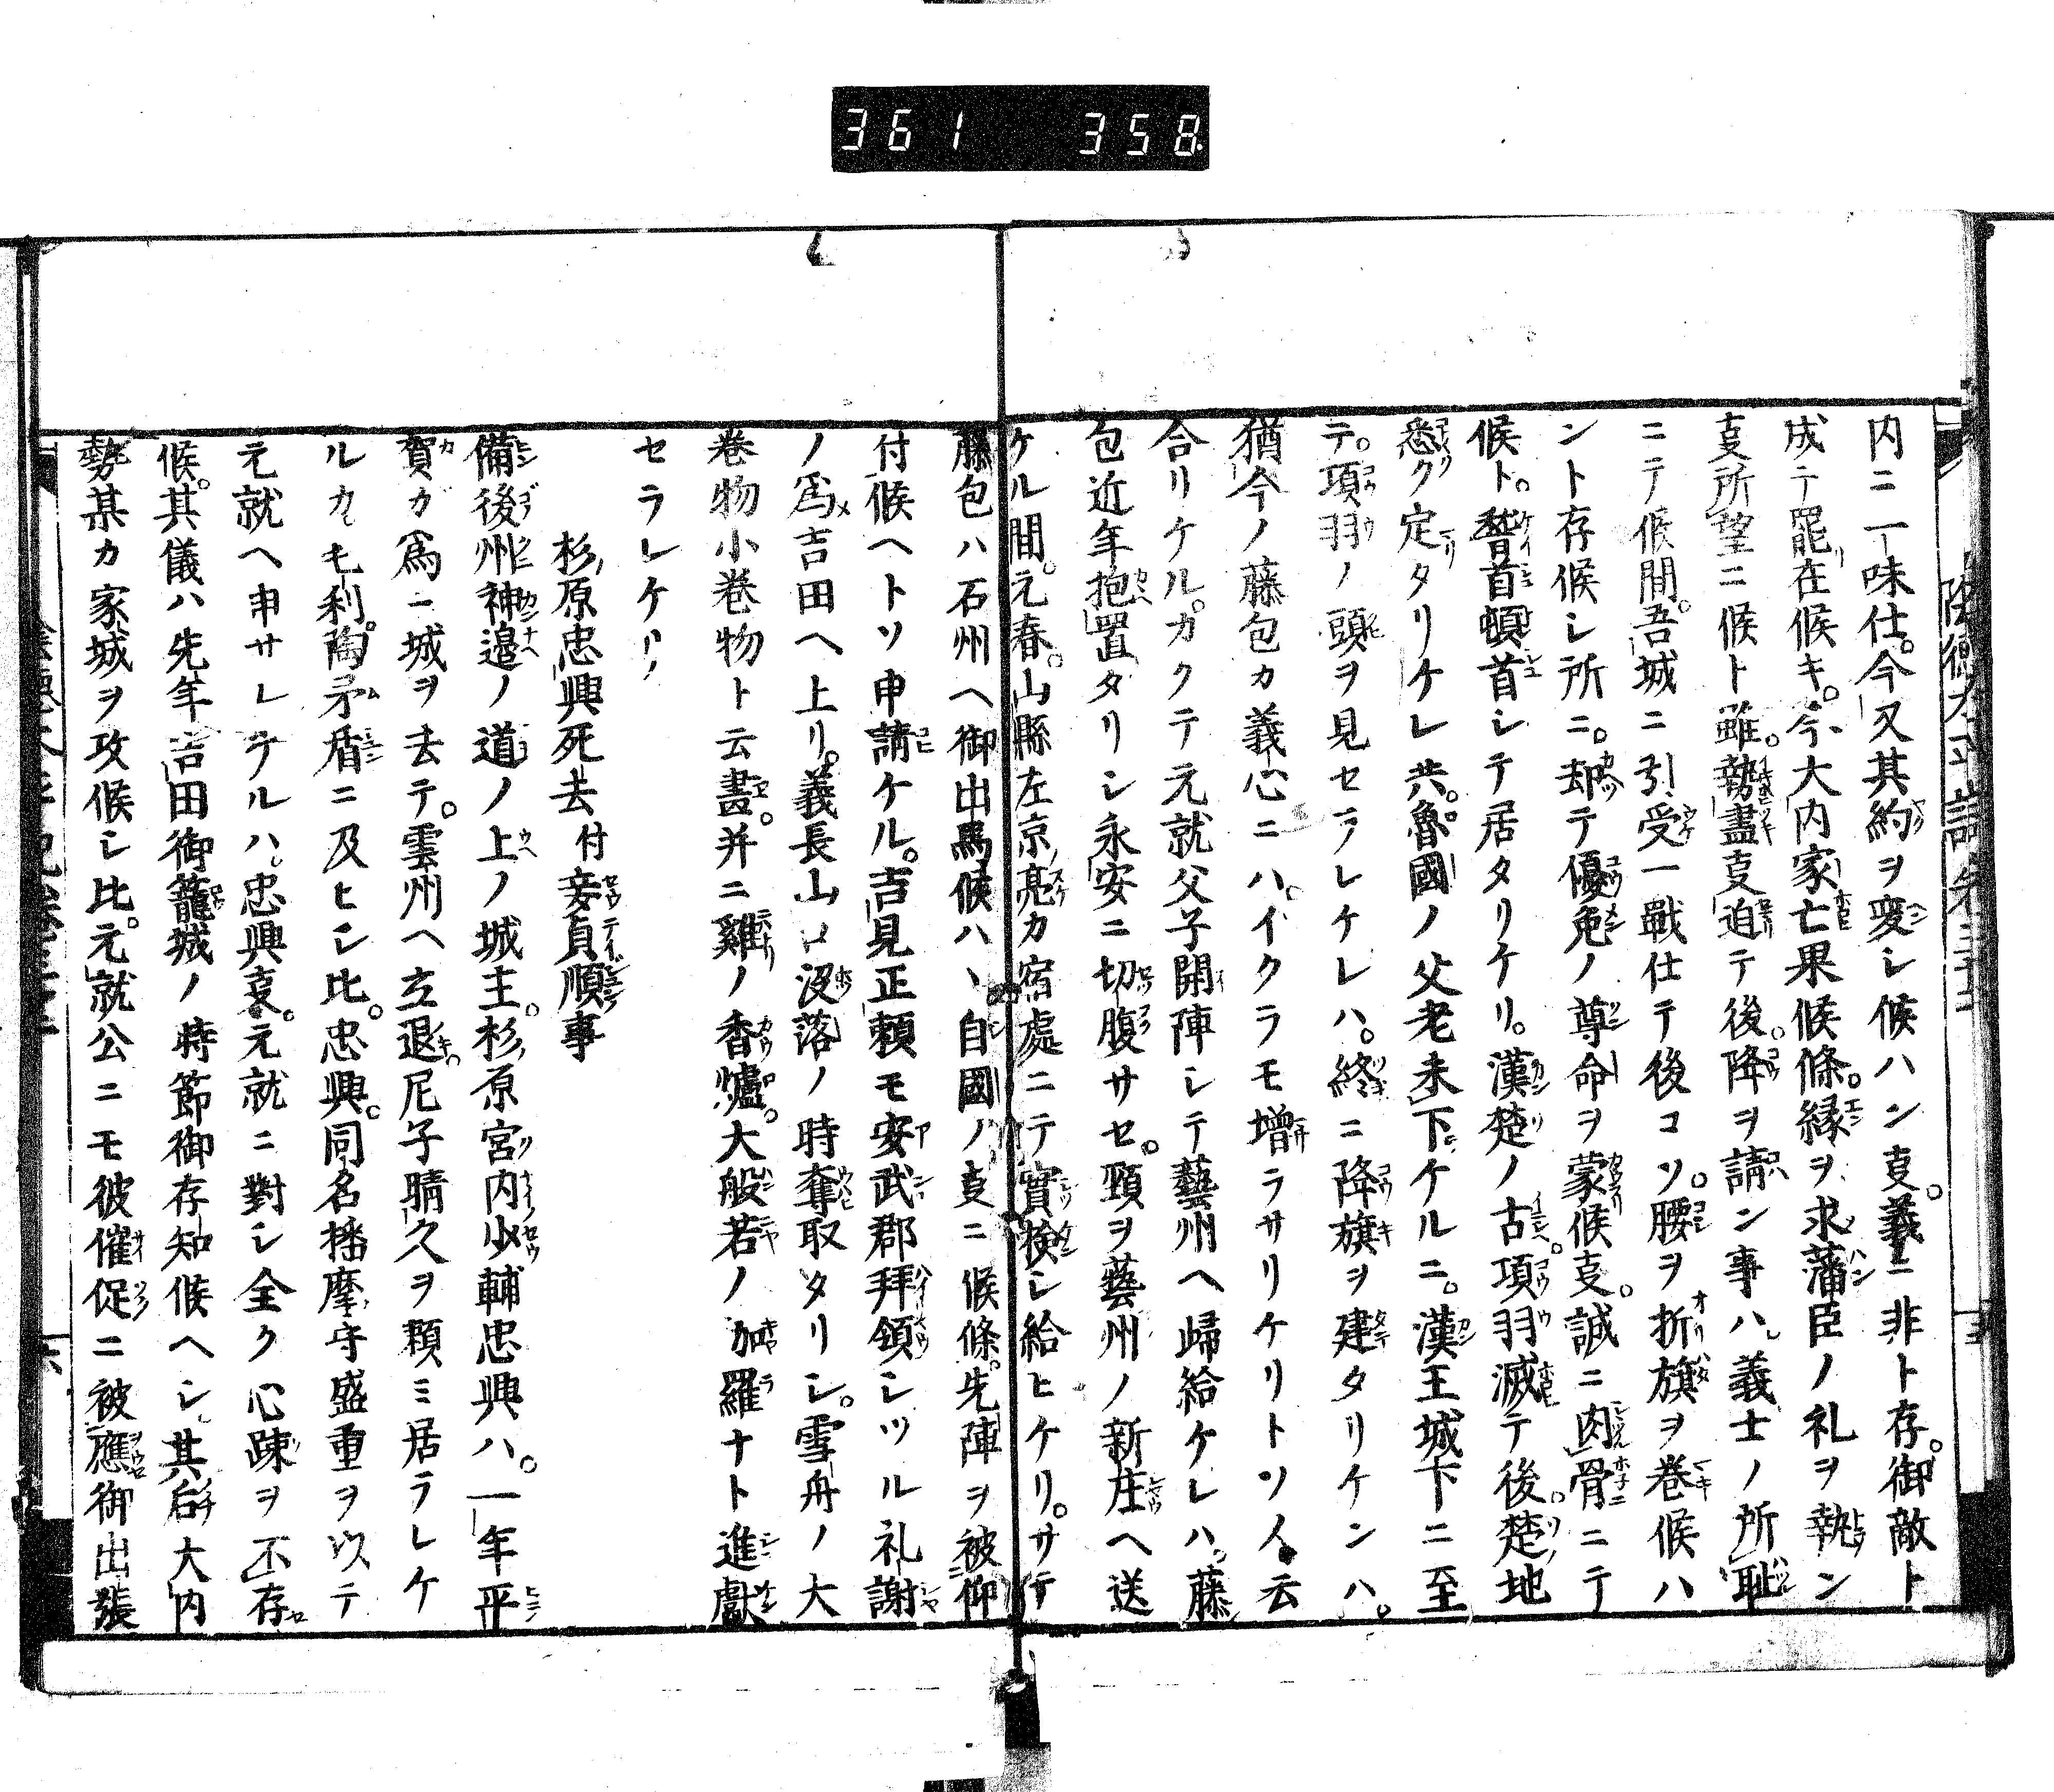 361 358
内ニ一味仕。今又其約ヲ変シ候ハン叓。義ニ非ト存。御敵ト
成テ罷在候キ。今大内家亡果候條。縁ヲ求藩臣ノ礼ヲ執ン
叓所望ニ候ト雖。勢盡叓迫テ後。降ヲ請ン事ハ義士ノ所耻
ニテ候間。吾城ニ引受一戰仕テ後コソ。腰ヲ折旗ヲ巻候ハ
ント存候シ所ニ。却テ優免ノ尊命ヲ蒙候叓。誠ニ肉骨ニテ
候ト。稽首頓首シテ居タリケリ。漢楚ノ古。項羽滅テ後。楚地
悉ク定タリケレ共。魯國ノ父老未下ケルニ。漢王城下ニ至
テ。項羽ノ頭ヲ見セラレケレハ。終ニ降旗ヲ建タリケンハ。
猶今ノ藤包カ義心ニハ。イクラモ増ラサリケリトソ人云
合リケル。カクテ元就父子開陣シテ藝州ヘ歸給ケレハ。藤
包近年抱置タリシ永安ニ切腹サセ。頸ヲ藝州ノ新庄ヘ送
ケル間。元春。山縣左京亮カ宿處ニテ實検シ給ヒケリ。サテ
藤包ハ石州ヘ御出馬候ハヽ自國ノ叓ニ候條。先陣ヲ被仰
付候ヘトソ申請ケル。吉見正頼モ安武郡拜領シツル礼謝
ノ爲吉田ヘ上リ。義長山口没落ノ時奪取タリシ。雪舟ノ大
巻物小巻物ト云畵。并ニ雞ノ香爐。大般若ノ加羅ナト進獻
セラレケリ
杉原忠興死去付妾貞順事
備後州神邉ノ道ノ上ノ城主。杉原宮内少輔忠興ハ。一年平
賀カ爲ニ城ヲ去テ。雲州ヘ立退。尼子晴久ヲ頼ミ居ラレケ
ルカ。毛利。陶矛盾ニ及ヒシ比。忠興。同名播摩守盛重ヲ以テ
元就ヘ申サレケルハ。忠興叓。元就ニ對シ全ク心疎ヲ不存
候。其儀ハ先年吉田御籠城ノ時節御存知候ヘシ。其后大内
勢某カ家城ヲ攻候シ比。元就公ニモ彼催促ニ被應御出張